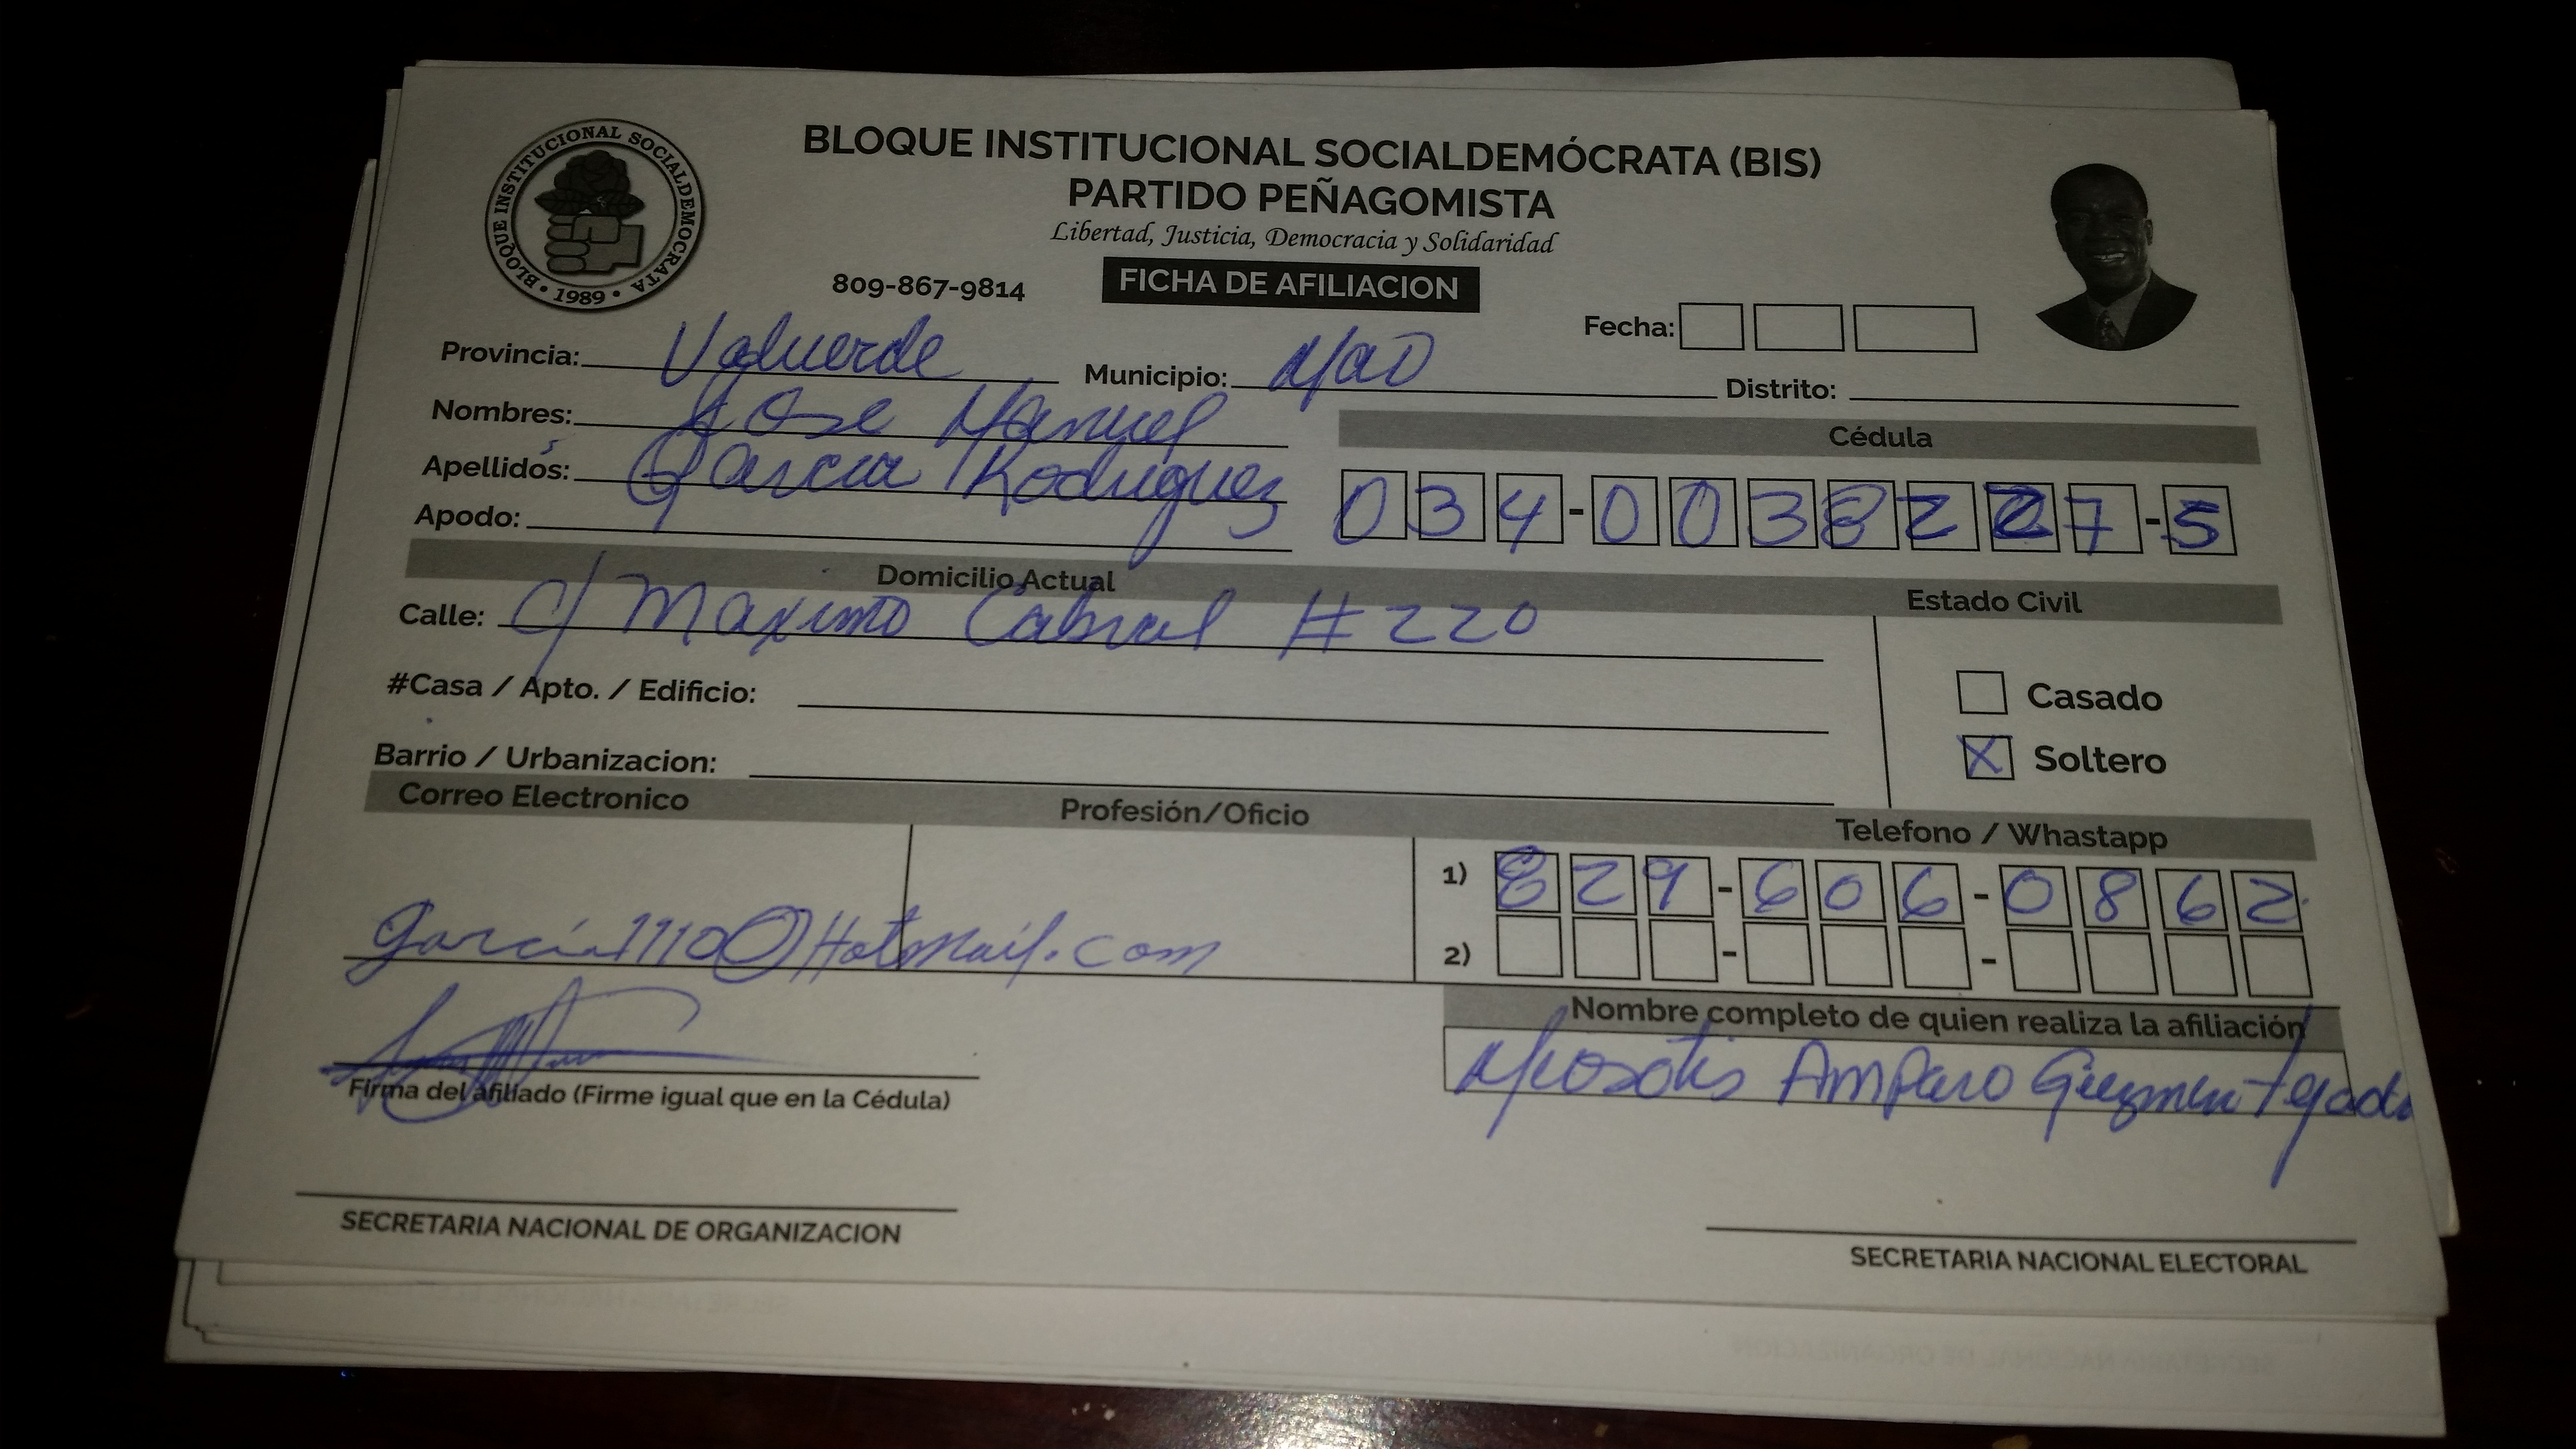 BLOQUE INSTITUCIONAL SOCIALDEMOCRATA
• 1989 •
BLOQUE INSTITUCIONAL SOCIALDEMÓCRATA (BIS)
PARTIDO PEÑAGOMISTA
Libertad, Justicia, Democracia y Solidaridad
809-867-9814 FICHA DE AFILIACION
Fecha:
Provincia: Valverde Municipio: Mao Distrito:
Nombres: Jose Manuel
Cédula
Apellidos: Garcia Rodriguez
034-0038227-5
Apodo:
Domicilio Actual
Estado Civil
Calle: c/ Maximo Cabral # 220
#Casa / Apto. / Edificio:
Casado
Barrio / Urbanizacion:
X Soltero
Correo Electronico Profesión/Oficio Telefono / Whastapp
1) 829-606-0862
garcia1110@Hotmail.com
2)
Nombre completo de quien realiza la afiliación
Miosotis Amparo Guzman Tejada
Firma del afiliado (Firme igual que en la Cédula)
SECRETARIA NACIONAL DE ORGANIZACION
SECRETARIA NACIONAL ELECTORAL